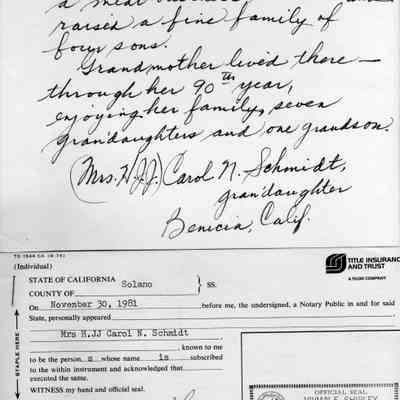 a
raised a fine family of
four sons.
Grandmother lived there —
through her 90th year,
enjoying her family, seven
grandaughters and one grandson.
(Mrs. H.J.J.) Carol N. Schmidt,
grandaughter
Benicia, Calif.
TO 1944 CA (8-74)
(Individual)
STATE OF CALIFORNIA
COUNTY OF Solano } SS.
TITLE INSURANCE
AND TRUST
A TICOR COMPANY
On November 30, 1981 before me, the undersigned, a Notary Public in and for said
State, personally appeared
Mrs H.JJ Carol N. Schmidt
, known to me
to be the person s whose name is subscribed
to the within instrument and acknowledged that
executed the same.
WITNESS my hand and official seal.
STAPLE HERE
OFFICIAL SEAL
VIVIAN E. SHIPLEY